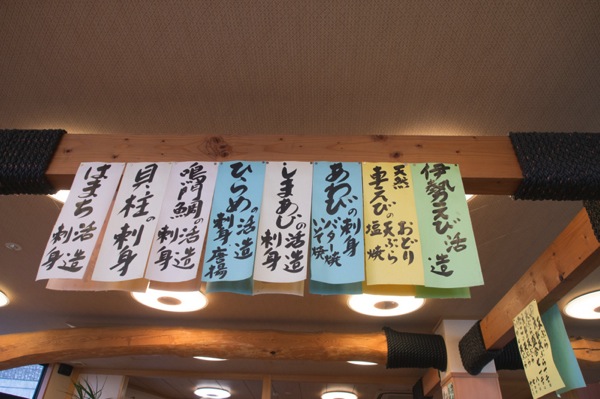 伊勢えび活造
天然
車えびの
おどり
天ぷら
塩焼
あわびの
刺身
バター焼
いそ焼
しまあじの活造
刺身
ひらめの活造
刺身、唐揚
鳴門鯛の活造
刺身
貝柱の刺身
はまち活造
刺身